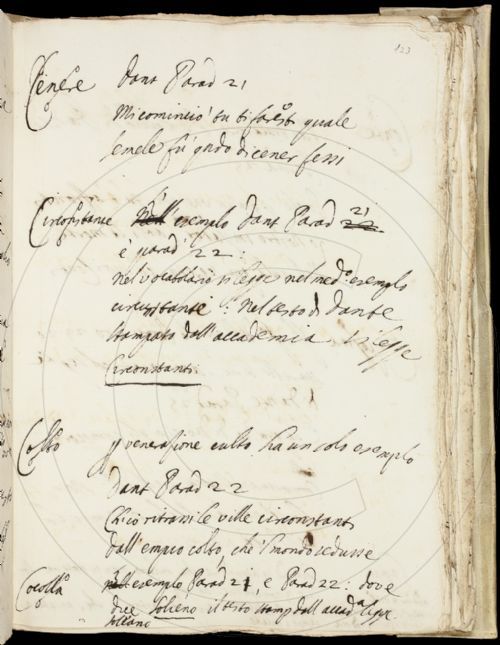 123
Cenere Dant Parad 21
Mi cominciò tu ti faresti quale
Semele fu qndo di cener fessi
Circonstante l'esemplo Dant Parad 21
è parad 22:
nel vocabolario si legge nel med.º esemplo
circustante: nel testo di Dante
stampato dall'accademia si legge
Circonstanti
Colto p venerazione culto ha un solo esemplo
Dant Parad 22
Ch'io ritrassi le ville circonstanti
dall'empio colto, che'l mondo sedusse
Cocolla esemplo Parad 21, e Parad 22: dove
dice solieno il testo stamp dall accad.ª legge
soleano